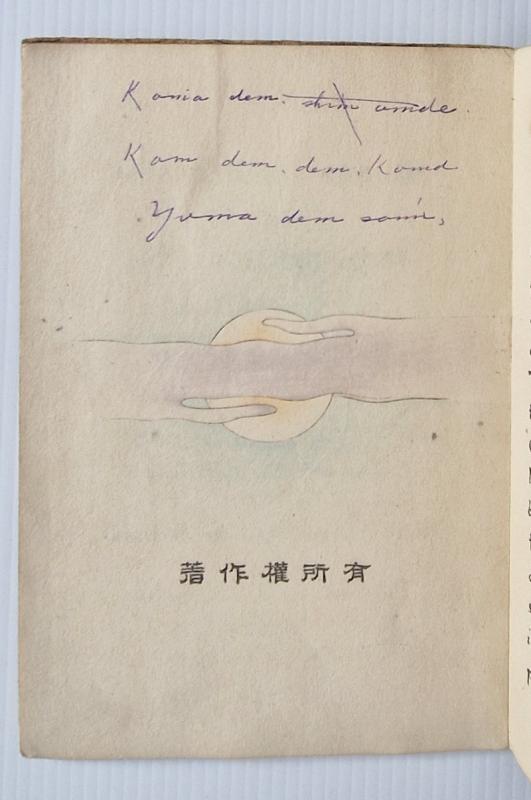 Kania dem. shim umde.
Kom dem. dem. Komd
Yuma dem
著作權所有